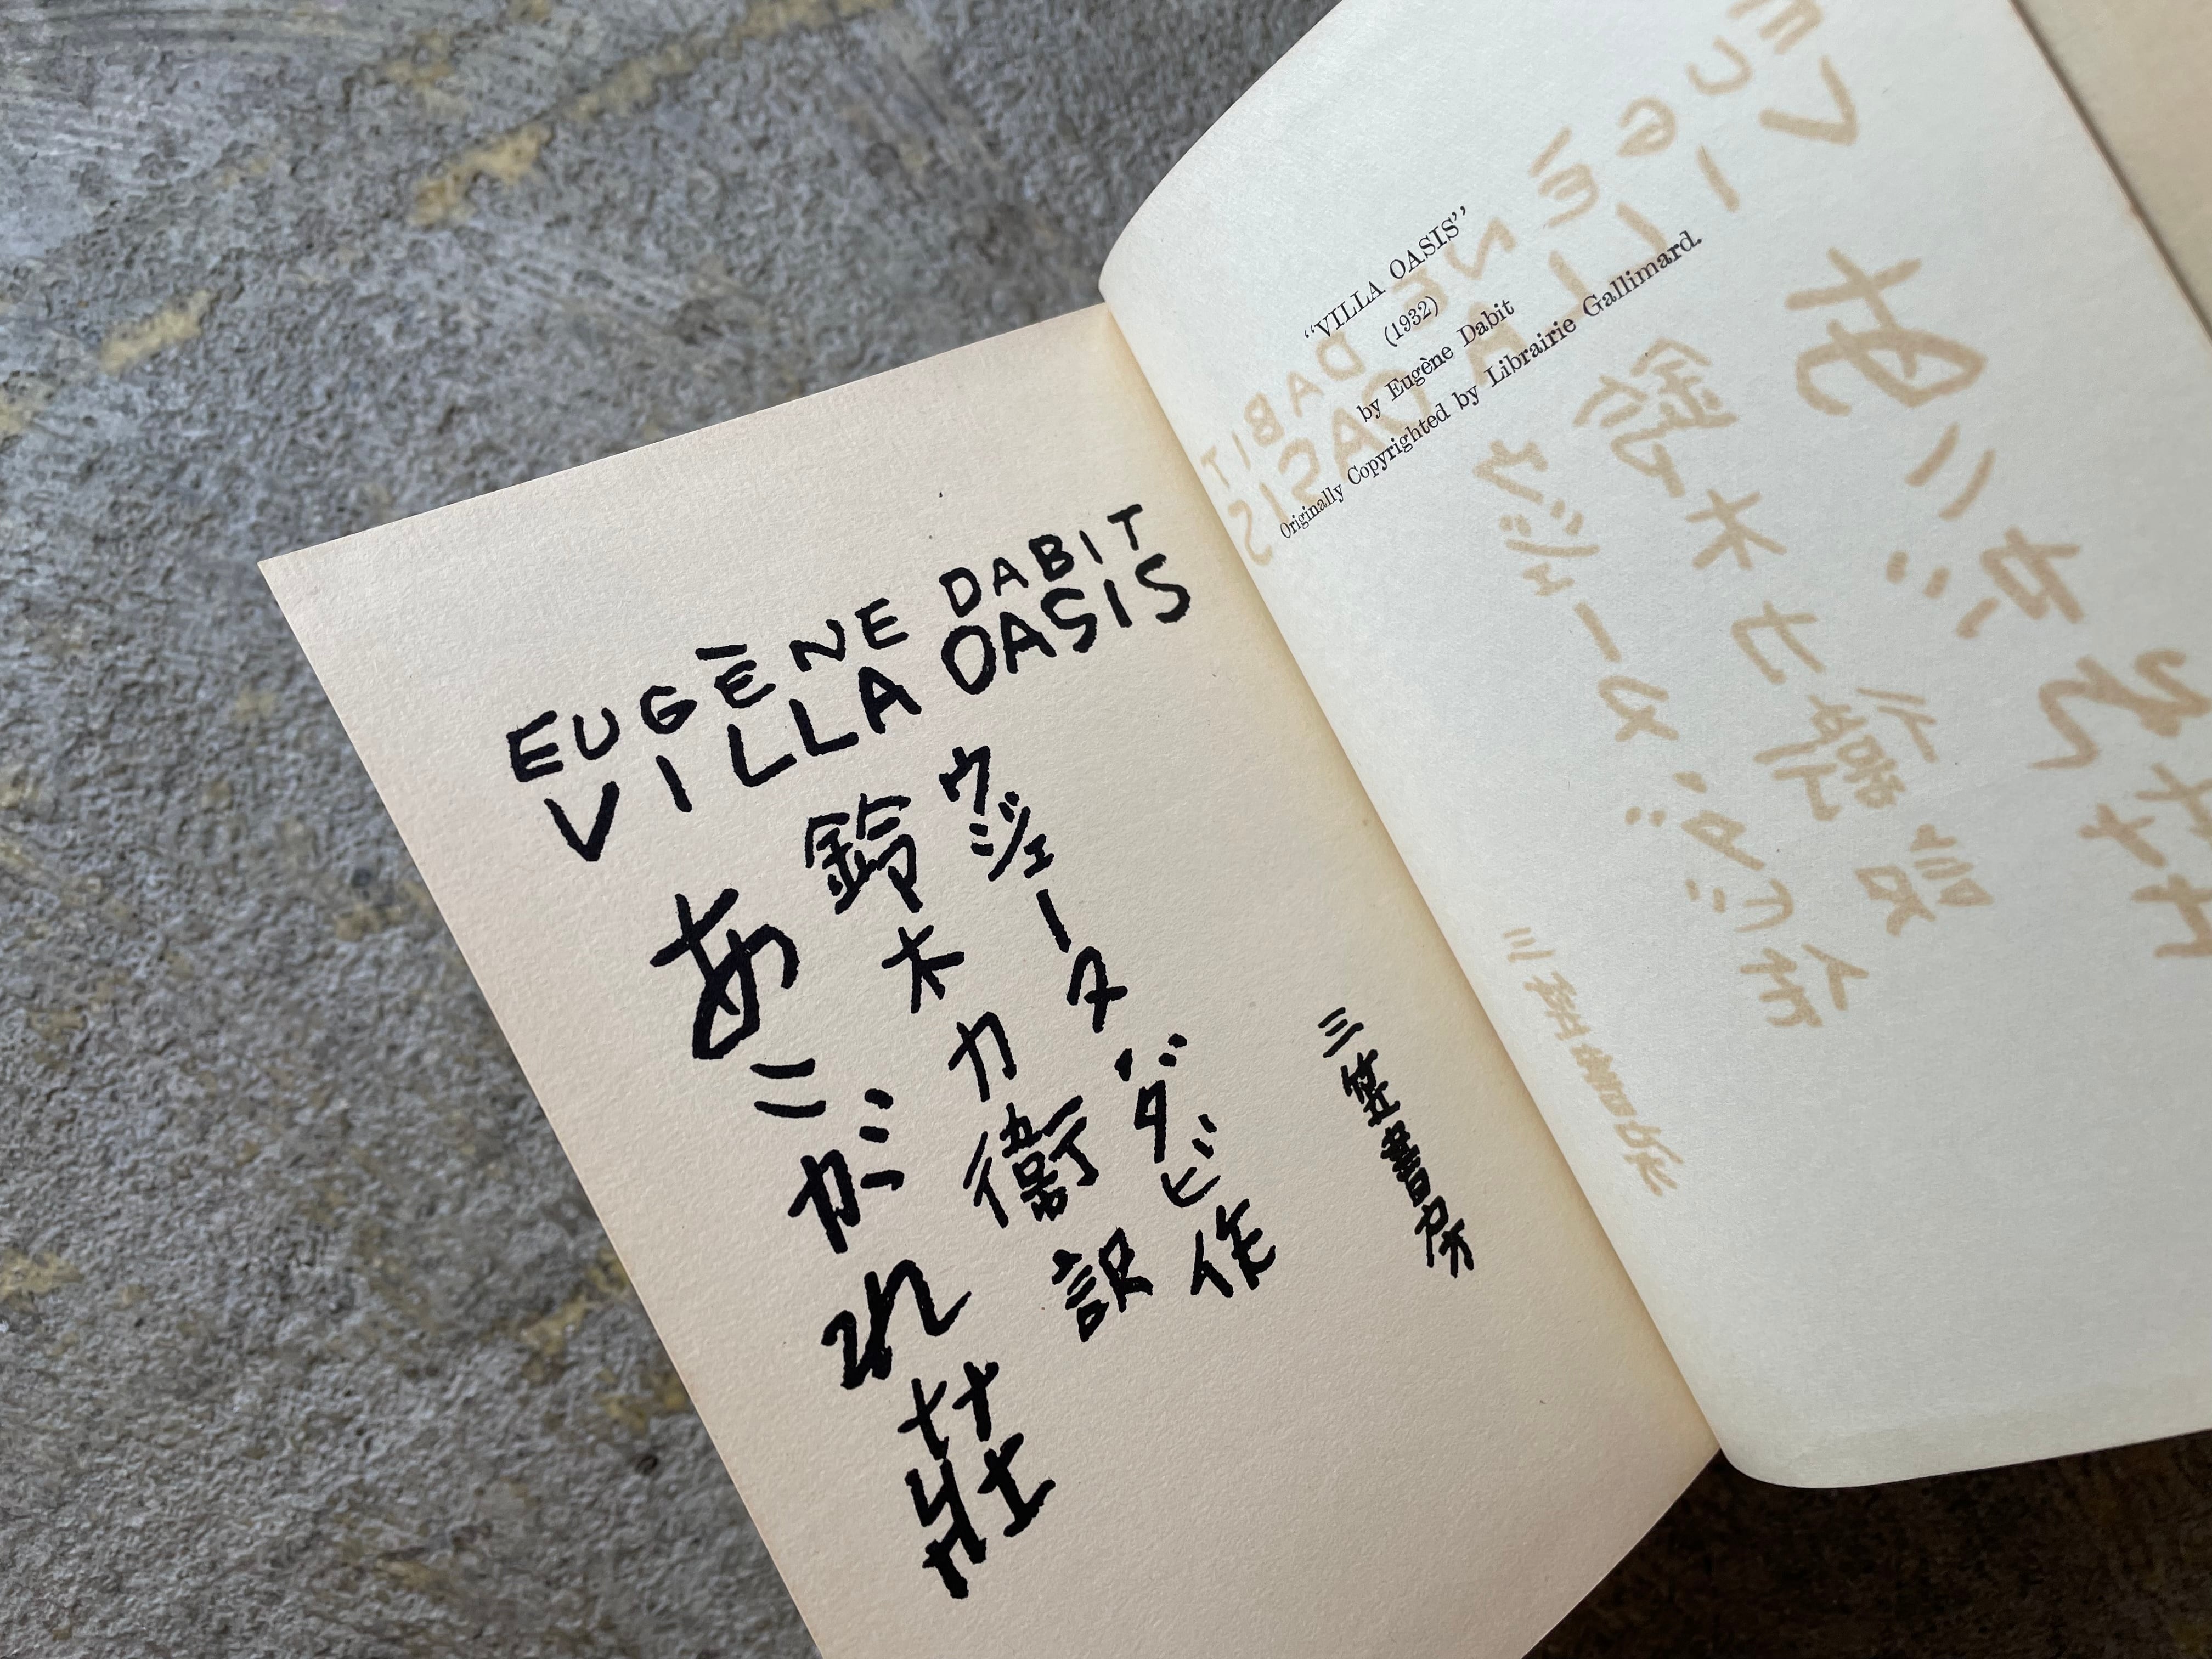 EUGÈNE DABIT
VILLA OASIS
三笠書房
ウジェーヌダビ作
鈴木力衞訳
あこがれ莊
“VILLA OASIS”
(1932)
by Eugène Dabit
Originally Copyrighted by Librairie Gallimard.